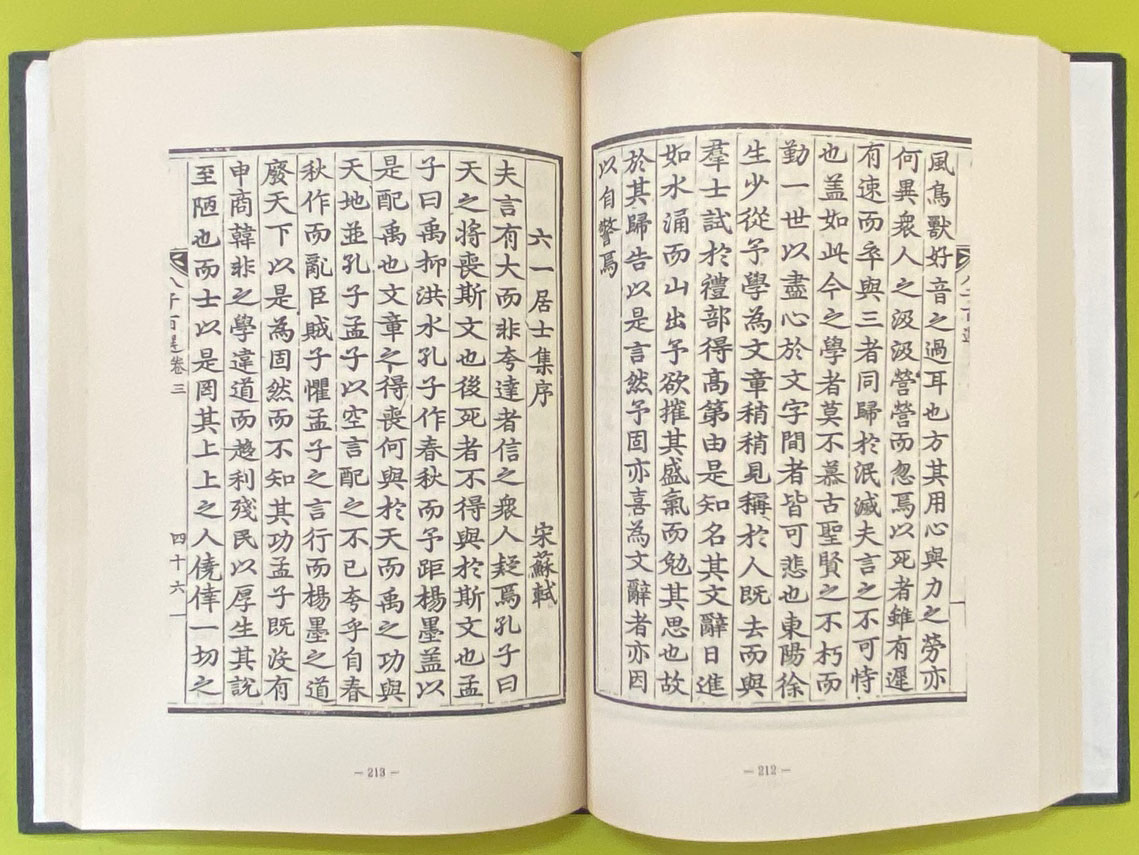 風鳥獸好音之過耳也方其用心與力之勞亦
何異衆人之汲汲營營而忽焉以死者雖有遲
有速而卒與三者同歸於泯滅夫言之不可恃
也盖如此今之學者莫不慕古聖賢之不朽而
勤一世以盡心於文字間者皆可悲也東陽徐
生少從予學為文章稍稍見稱於人既去而與
羣士試於禮部得高第由是知名其文辭日進
如水涌而山出予欲摧其盛氣而勉其思也故
於其歸告以是言然予固亦喜為文辭者亦因
以自警焉
－212－
六一居士集序 宋蘇軾
夫言有大而非夸達者信之衆人疑焉孔子曰
天之將喪斯文也後死者不得與於斯文也孟
子曰禹抑洪水孔子作春秋而予距楊墨盖以
是配禹也文章之得喪何與於天而禹之功與
天地並孔子孟子以空言配之不已夸乎自春
秋作而亂臣賊子懼孟子之言行而楊墨之道
廢天下以是為固然而不知其功孟子既沒有
申商韓非之學違道而趨利殘民以厚生其說
至陋也而士以是罔其上上之人僥倖一切之
八子百選卷三 四十六
－213－